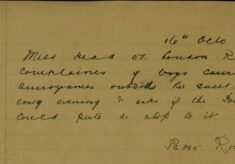 16th Octo
Miss Head 57. London R
complaines of boys caus
annoyances outside her
every evening & asks if the
could put a stop to it